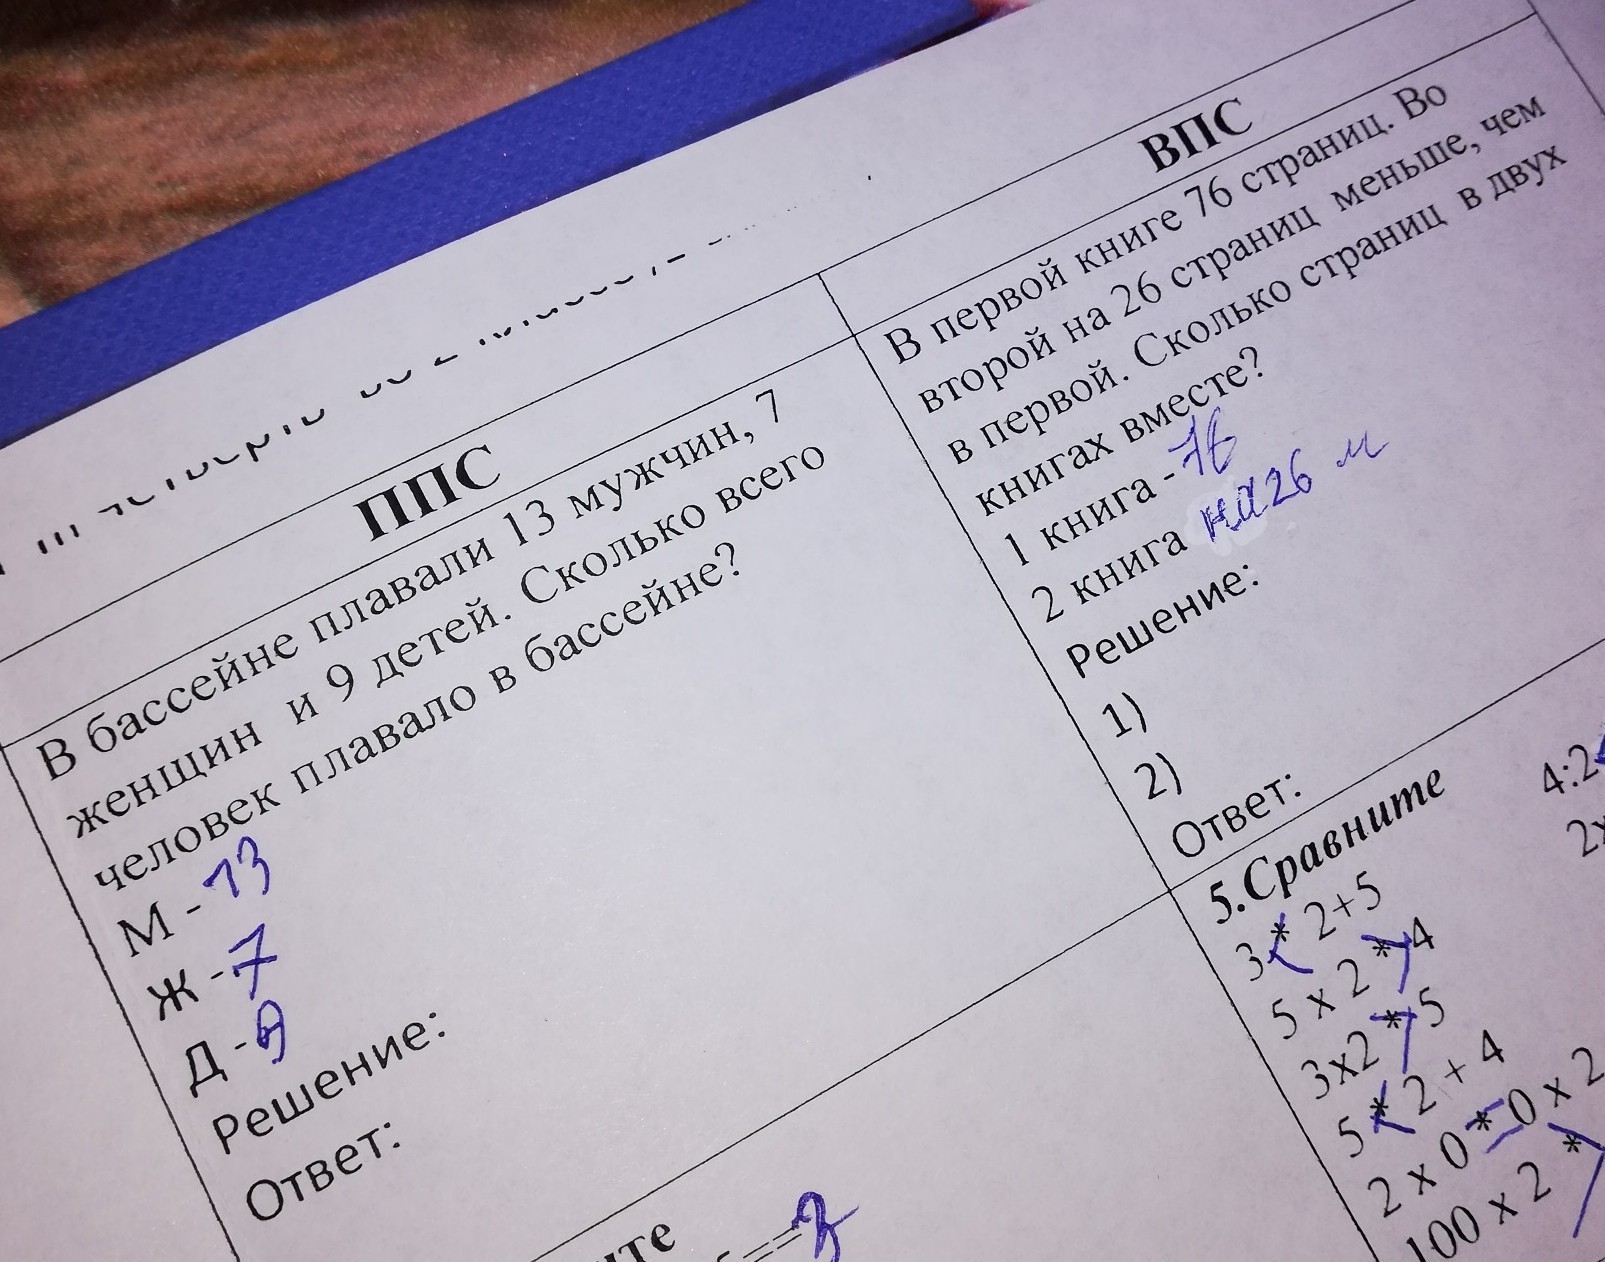 ППС
В бассейне плавали 13 мужчин, 7
женщин и 9 детей. Сколько всего
человек плавало в бассейне?
М - 13
Ж - 7
Д - 9
Решение:
Ответ:
ВПС
В первой книге 76 страниц. Во
второй на 26 страниц меньше, чем
в первой. Сколько страниц в двух
книгах вместе?
1 книга - 76
2 книга на 26 м
Решение:
1)
2)
Ответ:
5.Сравните
3 * < 2+5
5 x 2 * > 4
3x2 * > 5
5 * < 2 + 4
2 x 0 * = 0 x 2
100 x 2 * >
4:2